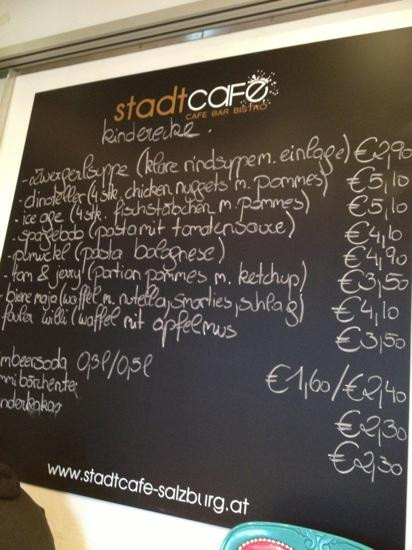 stadtcafé
CAFE BAR BISTRO
kinderecke.
- zwergerlsuppe (klare rindsuppe m. einlage) €2,90
- dinoteller (4 stk. chicken nuggets m. pommes) €5,10
- ice age (4 stk. fischstäbchen m. pommes) €5,10
- spongebob (pasta mit tomatensauce) €4,10
- pumuckl (pasta bolognese) €4,90
- tom & jerry (portion pommes m. ketchup) €3,50
- biene maja (waffel m. nutella, smarties, schlag) €4,10
fauler willi (waffel mit apfelmus €3,50
mbeersoda 0,3l/0,5l €1,60/€2,40
mmibärchentee €2,30
nderkakao €2,30
www.stadtcafe-salzburg.at